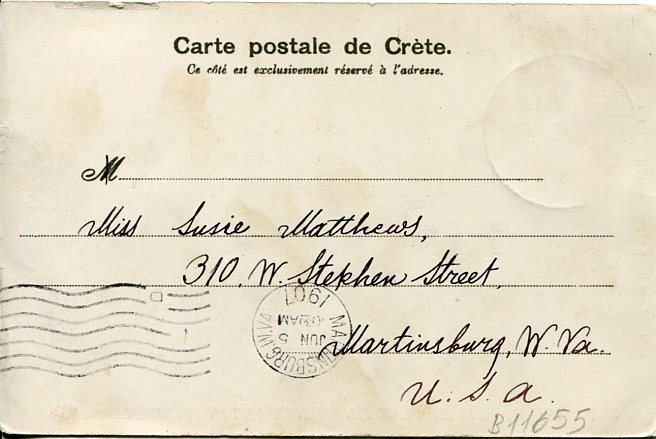 Carte postale de Crète.
Ce côté est exclusivement réservé à l'adresse.
M
Miss Susie Matthews,
310. W. Stephen Street,
Martinsburg, W. Va.
U. S. A.
MARTINSBURG, W.VA
JUN 5
AM
1907
D
1
B11655